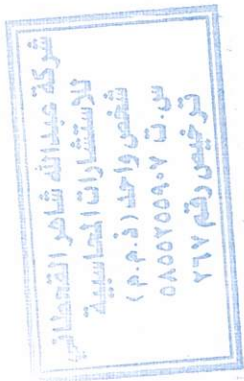 شركة عبدالله شاهر القحطاني
للاستشارات المحاسبية
شخص واحد (ذ.م.م)
س.ت ٥٨٥٥٣٥٥٩٠٧
ترخيص رقم ٨٦٧